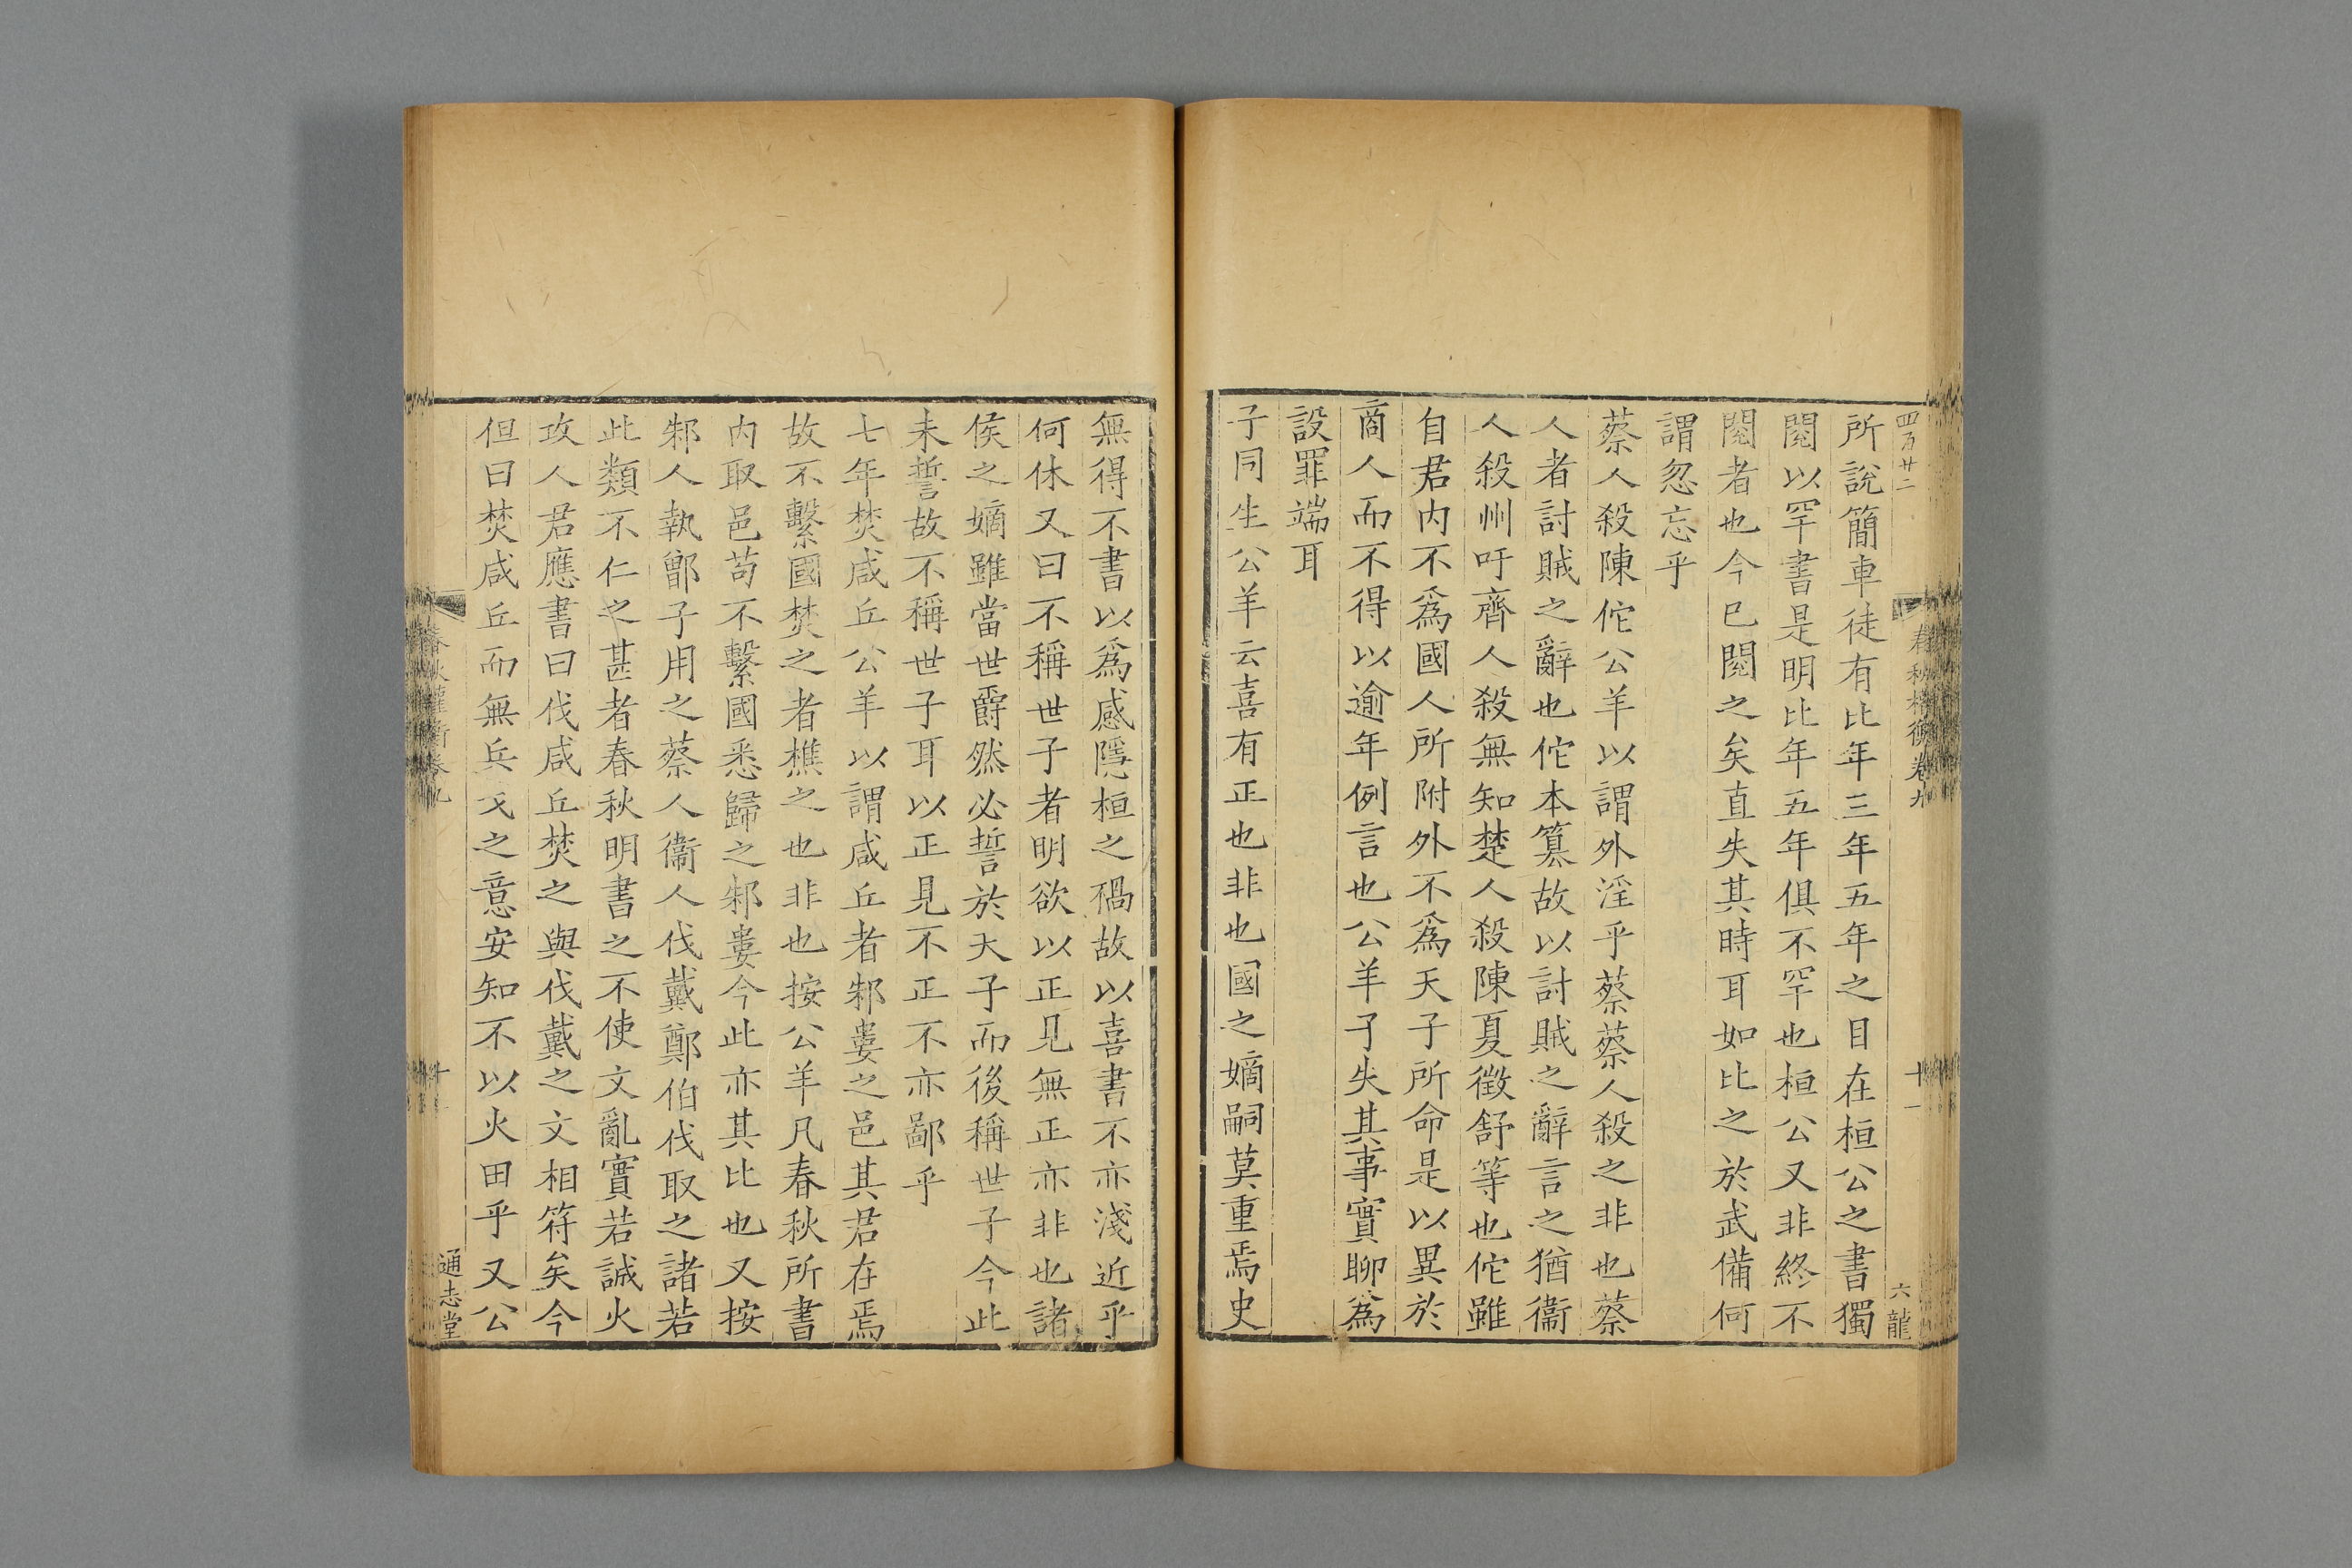 四百廿二
春秋權衡卷九
十一
六龍
所說簡車徒有比年三年五年之目在桓公之書獨
閱以罕書是明比年五年俱不罕也桓公又非終不
閱者也今已閱之矣直失其時耳如比之於武備何
謂忽忘乎
蔡人殺陳佗公羊以謂外淫乎蔡蔡人殺之非也蔡
人者討賊之辭也佗本篡故以討賊之辭言之猶衞
人殺州吁齊人殺無知楚人殺陳夏徵舒等也佗雖
自君內不爲國人所附外不爲天子所命是以異於
商人而不得以逾年例言也公羊子失其事實聊爲
設罪端耳
子同生公羊云喜有正也非也國之嫡嗣莫重焉史
無得不書以爲感隱桓之禍故以喜書不亦淺近乎
何休又曰不稱世子者明欲以正見無正亦非也諸
侯之嫡雖當世爵然必誓於天子而後稱世子今此
未誓故不稱世子耳以正見不正不亦鄙乎
七年焚咸丘公羊以謂咸丘者邾婁之邑其君在焉
故不繫國焚之者樵之也非也按公羊凡春秋所書
內取邑苟不繫國悉歸之邾婁今此亦其比也又按
邾人執鄫子用之蔡人衞人伐戴鄭伯伐取之諸若
此類不仁之甚者春秋明書之不使文亂實若誠火
攻人君應書曰伐咸丘焚之與伐戴之文相符矣今
但曰焚咸丘而無兵戈之意安知不以火田乎又公
春秋權衡卷九
十一
通志堂